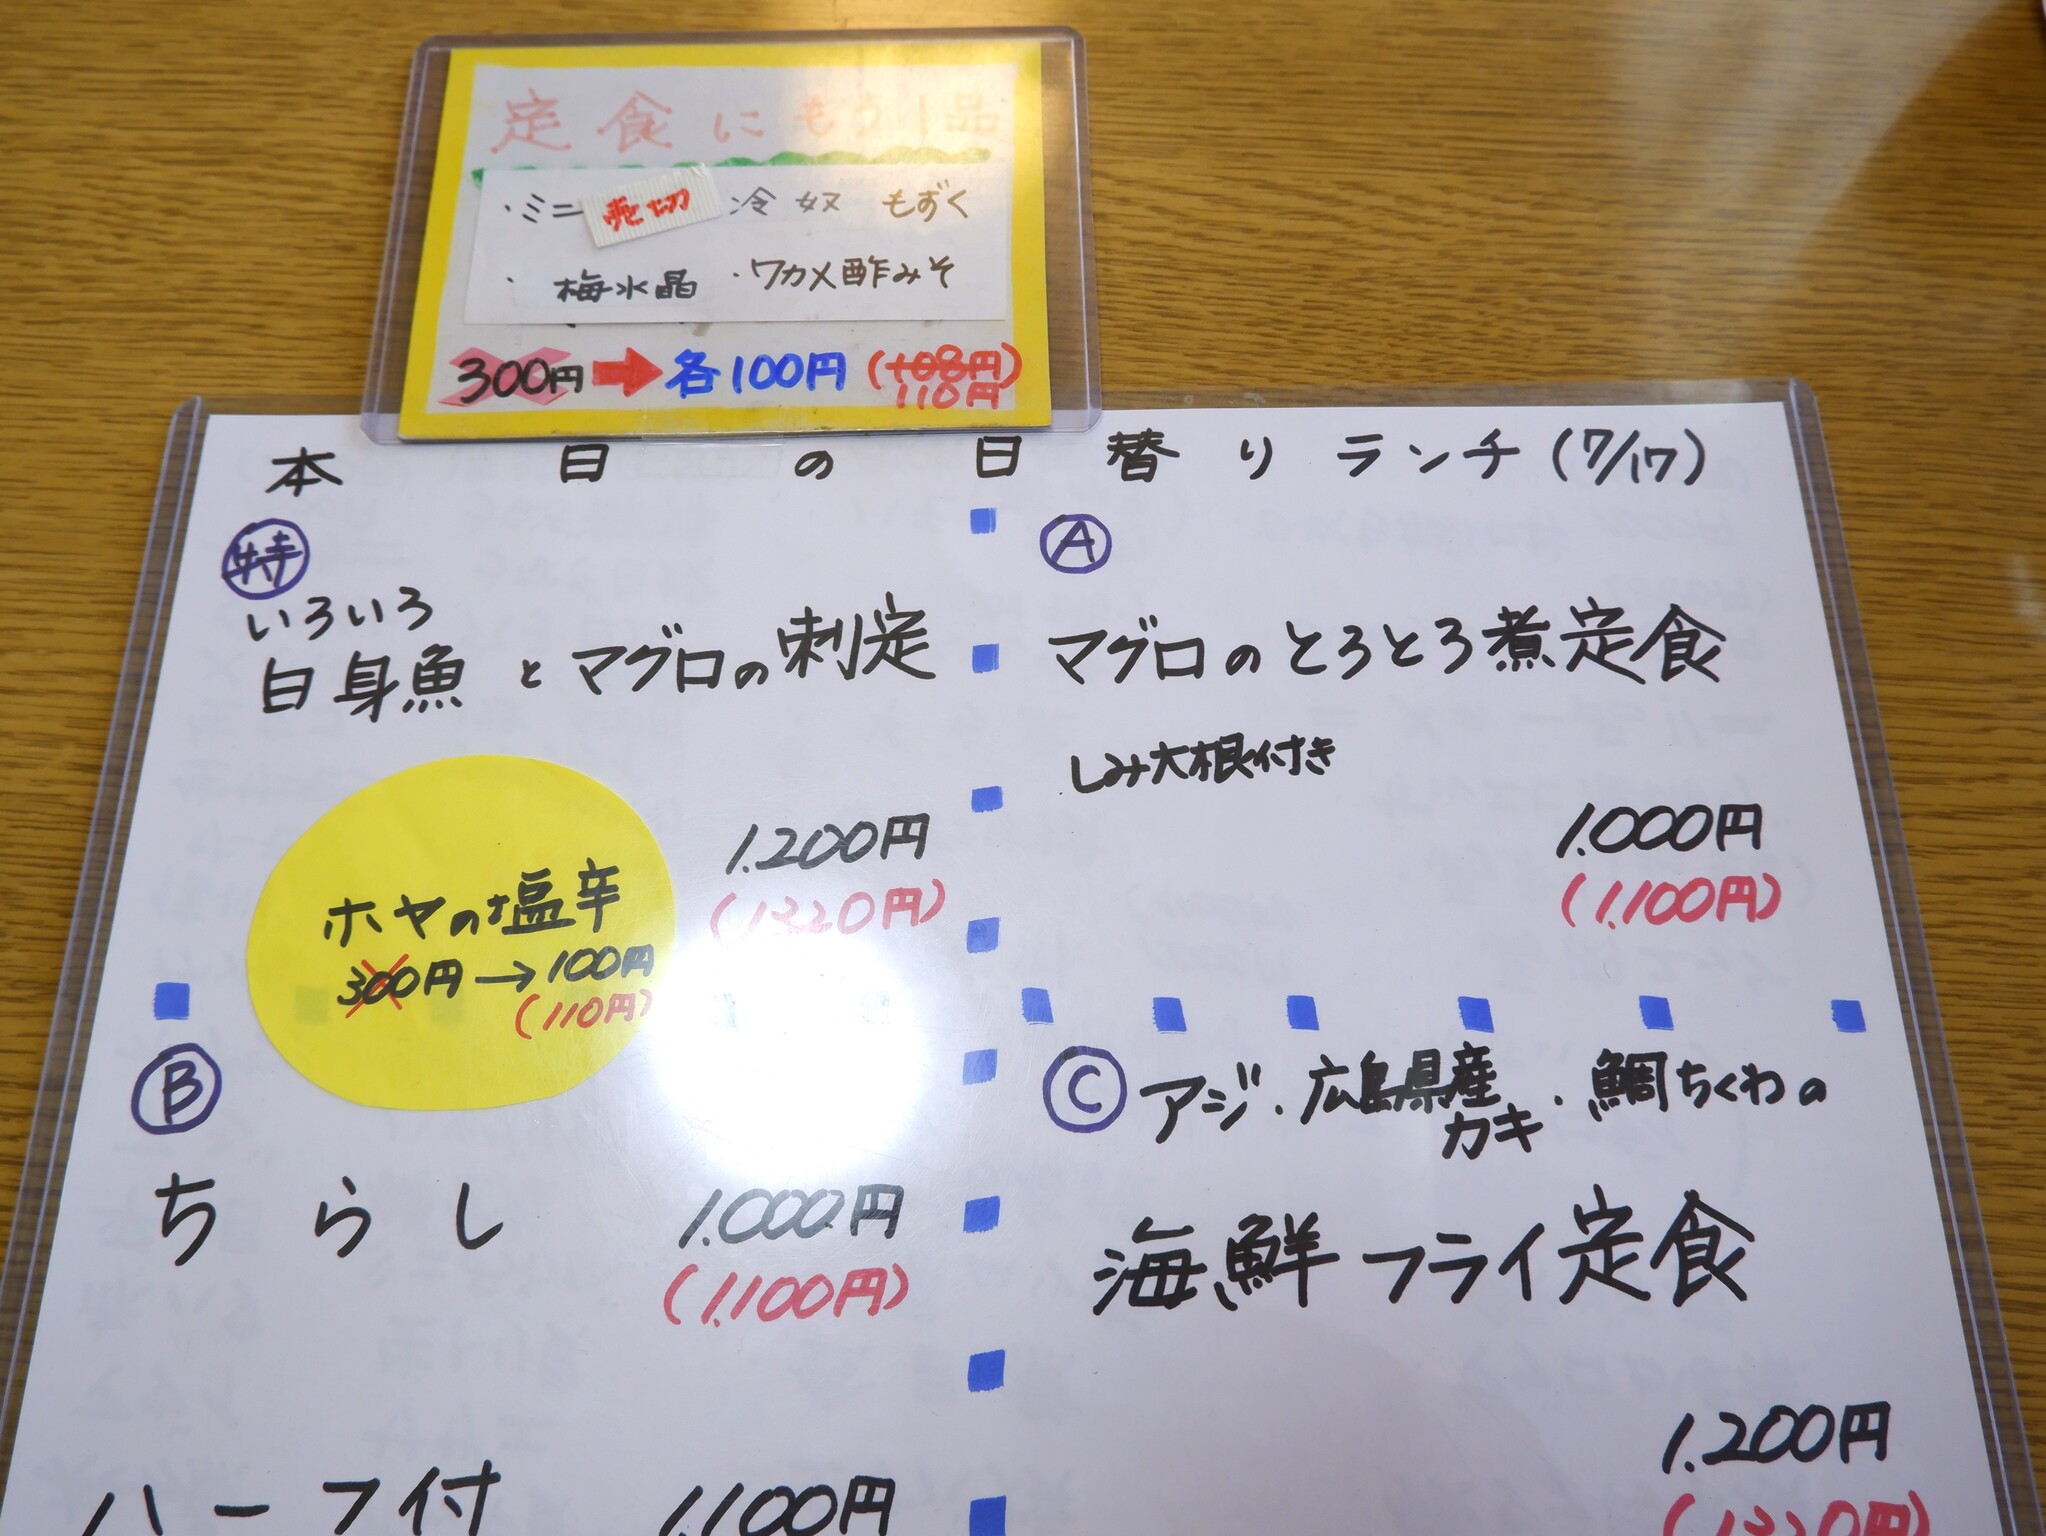 定食にもう1品
・ミニ 売切 冷奴 もずく
・梅水晶 ・ワカメ酢みそ
300円➡各100円(108円)
110円
本日の日替りランチ(7/17)
特
いろいろ
白身魚とマグロの刺定
1.200円
(1.320円)
ホヤの塩辛
300円→100円
(110円)
A
マグロのとろとろ煮定食
しみ大根付き
1.000円
(1.100円)
B
ちらし 1.000円
(1.100円)
ハーフ付 1.100円
C アジ・広島県産カキ・鯛ちくわの
海鮮フライ定食
1.200円
(1.320円)